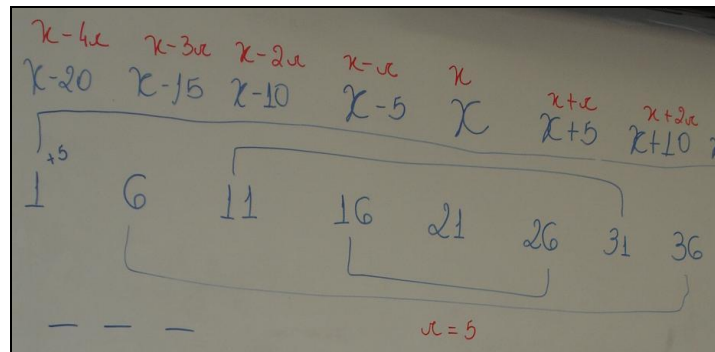 x-4r x-3r x-2r x-r x x+r x+2r
x-20 x-15 x-10 x-5 x x+5 x+10
+5
1 6 11 16 21 26 31 36
r=5